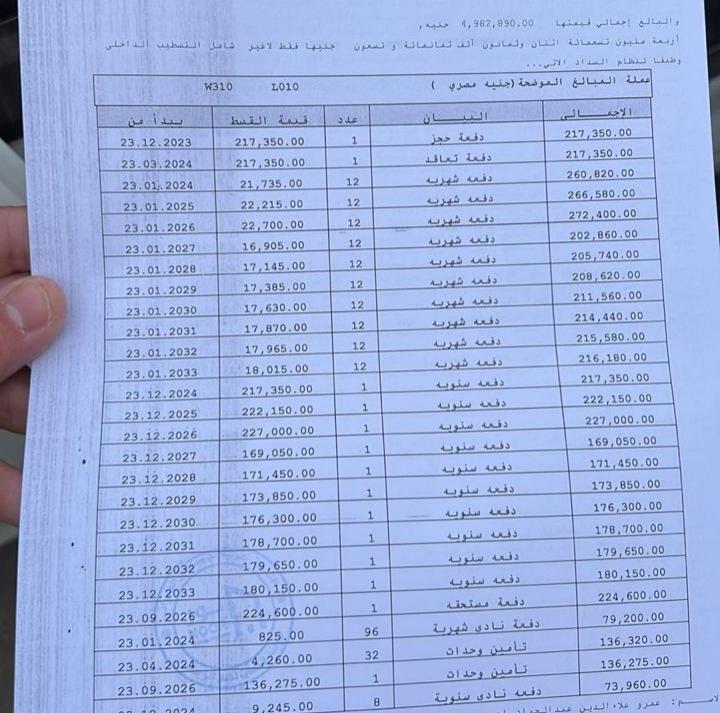 والبالغ إجمالي قيمتها 4,982,890.00 جنيه,
أربعة مليون تسعمائة اثنان وثمانون ألف ثمانمائة و تسعون جنيها فقط لاغير شامل التشطيب الداخلى
وطبقا لنظام السداد الاتي...
عملة المبالغ الموضحة(جنيه مصري ) L010 W310
الاجمالى البيان عدد قيمة القسط يبدأ من
217,350.00 دفعة حجز 1 217,350.00 23.12.2023
217,350.00 دفعة تعاقد 1 217,350.00 23.03.2024
260,820.00 دفعه شهريه 12 21,735.00 23.01.2024
266,580.00 دفعه شهريه 12 22,215.00 23.01.2025
272,400.00 دفعه شهريه 12 22,700.00 23.01.2026
202,860.00 دفعه شهريه 12 16,905.00 23.01.2027
205,740.00 دفعه شهريه 12 17,145.00 23.01.2028
208,620.00 دفعه شهريه 12 17,385.00 23.01.2029
211,560.00 دفعه شهريه 12 17,630.00 23.01.2030
214,440.00 دفعه شهريه 12 17,870.00 23.01.2031
215,580.00 دفعه شهريه 12 17,965.00 23.01.2032
216,180.00 دفعه شهريه 12 18,015.00 23.01.2033
217,350.00 دفعه سنويه 1 217,350.00 23.12.2024
222,150.00 دفعه سنويه 1 222,150.00 23.12.2025
227,000.00 دفعه سنويه 1 227,000.00 23.12.2026
169,050.00 دفعه سنويه 1 169,050.00 23.12.2027
171,450.00 دفعه سنويه 1 171,450.00 23.12.2028
173,850.00 دفعه سنويه 1 173,850.00 23.12.2029
176,300.00 دفعه سنويه 1 176,300.00 23.12.2030
178,700.00 دفعه سنويه 1 178,700.00 23.12.2031
179,650.00 دفعه سنويه 1 179,650.00 23.12.2032
180,150.00 دفعه سنويه 1 180,150.00 23.12.2033
224,600.00 دفعة مستحقه 1 224,600.00 23.09.2026
79,200.00 دفعة نادى شهرية 96 825.00 23.01.2024
136,320.00 تأمين وحدات 32 4,260.00 23.04.2024
136,275.00 تأمين وحدات 1 136,275.00 23.09.2026
73,960.00 دفعه نادى سنوية 8 9,245.00
عمرو علاء الدين